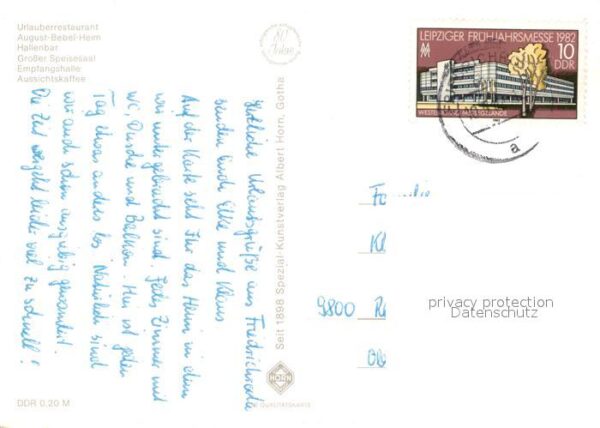 Urlauberrestaurant
August-Bebel-Heim
Hallenbar
Großer Speisesaal
Empfangshalle
Aussichtskaffee
LEIPZIGER FRÜHJAHRSMESSE 1982
MM
10
DDR
a
Herzliche Urlaubsgrüße aus Friedrichroda
senden Euch Elke und Klaus
Auf der Karte seht Ihr das Heim in dem
wir untergebracht sind. Jedes Zimmer mit
WC, Dusche und Balkon. Hier ist jeden
Tag etwas anders los. Natürlich sind
wir auch schon ausgiebig gewandert.
Die Zeit vergeht leider viel zu schnell!
Seit 1898 Spezial-Kunstverlag Albert Horn, Gotha
HORN
QUALITÄTSKARTE
9800
privacy protection
Datenschutz
DDR 0,20 M